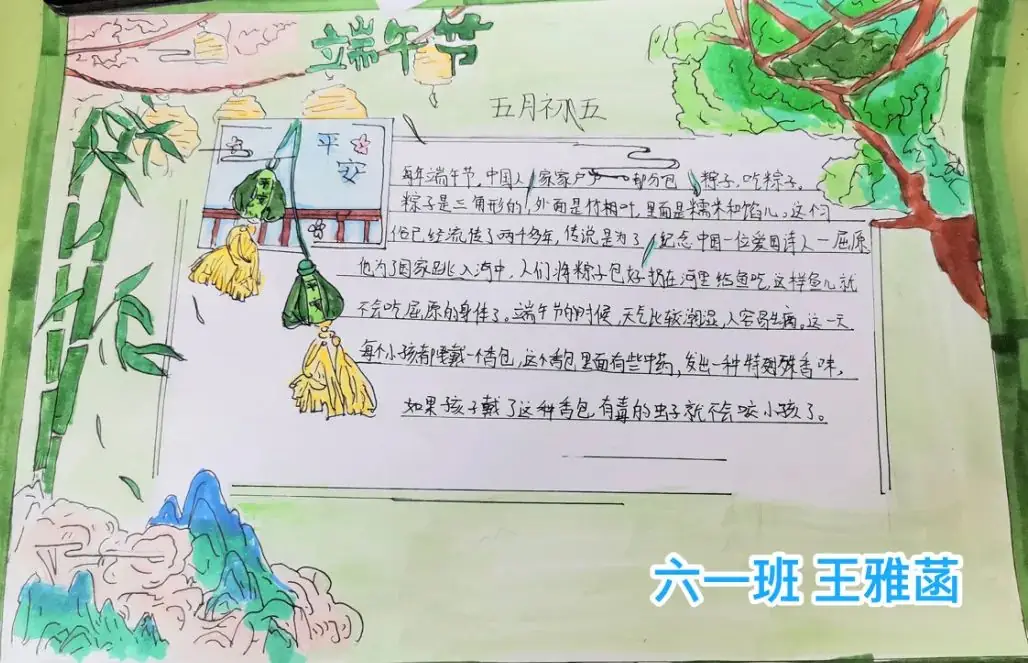 端午节
五月初五
平安
每年端午节,中国人家家户户都分包粽子,吃粽子。
粽子是三角形的,外面是竹相叶,里面是糯米和馅儿。这个习
俗已经流传了两千多年,传说是为了纪念中国一位爱国诗人—屈原
他为了国家跳入河中,人们将粽子包好扔在河里给鱼吃,这样鱼儿就
不会吃屈原的身体了。端午节的时候,天气比较潮湿,人容易生病。这一天
每个小孩都要戴一个香包,这个香包里面有些中药,发出一种特殊香味,
如果孩子戴了这种香包有毒的虫子就不会咬小孩了。
六一班 王雅菡